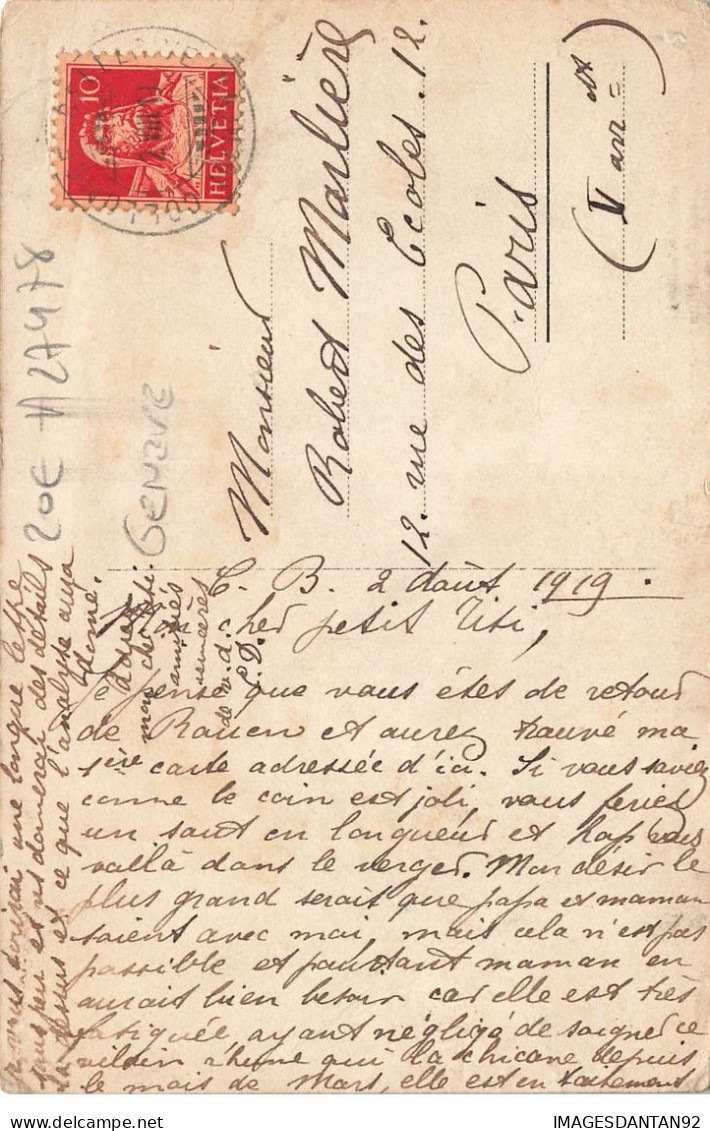 10
HELVETIA
20E N 27478
GENEVE
Monsieur
Robert Marlière
12. rue des Ecoles. 12.
Paris
(V arr dt =)
C. B. 2 août 1919.
Mon cher petit Titi,
Je pense que vous êtes de retour
de Rouen et aurez trouvé ma
1ère carte adressée d'ici. Si vous saviez
comme le coin est joli, vous feriez
un saut en longueur et hop vous
voilà dans le verger. Mon désir le
plus grand serait que papa et maman
soient avec moi, mais cela n'est pas
possible et pourtant maman en
aurait bien besoin car elle est très
fatiguée ayant négligé de soigner ce
vilain rhume qui la chicane depuis
le mois de Mars, elle est en traitement
Je vous écrirai une longue lettre
sous peu et vs donnerai des détails
là dessus et ce que l'analyse aura
donné.
mon cher Titi
amitiés
sincères
de v. d.
C.D.
IMAGESDANTAN92
delcampe.net